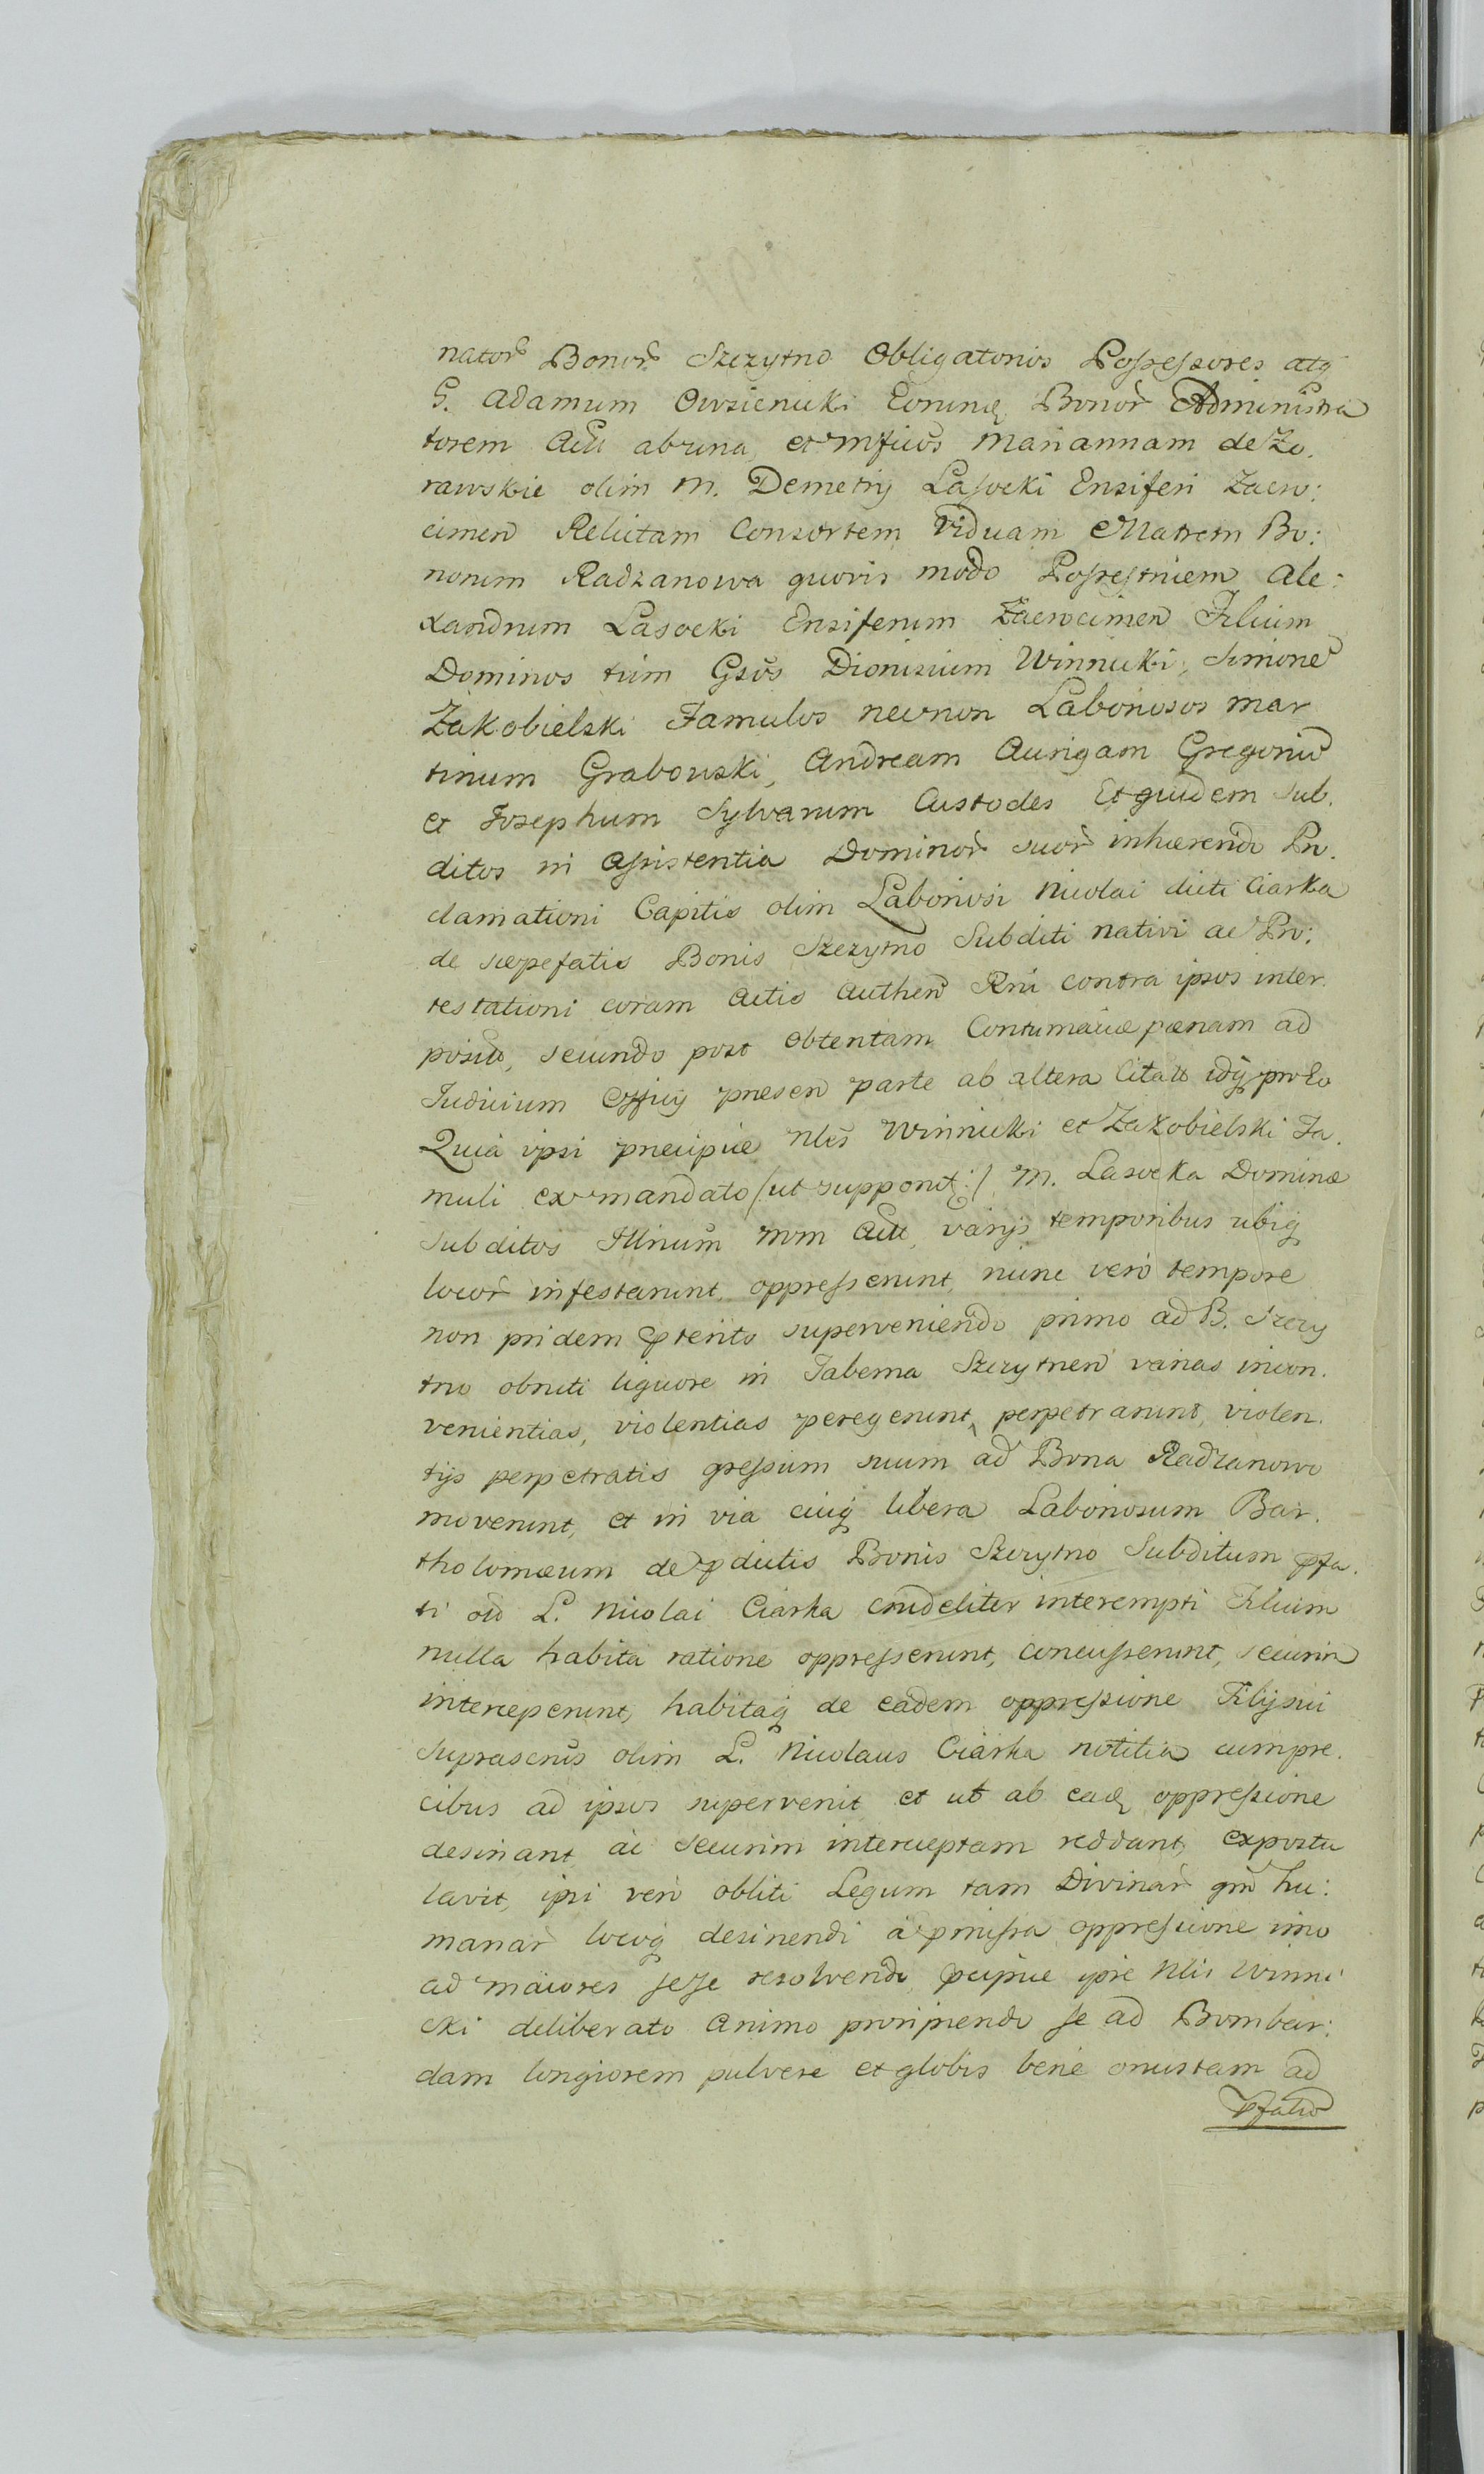 nator̃ Bonor̃ Szczytno Obligatorios Possessores atq̃
G. Adamum Owsienicki Eorundẽ Bonor̃ Administra
torem Actt ab una, et Mficos Mariannam de Zo.
rawskie olim M. Demetrij Lasocki Ensiferi Zacro:
cimen̄ Relictam Consortem Viduam Matrem Bo:
norum Radzanowa quovis modo Possestricem Ale:
xandrum Lasocki Ensiferum Zacrocimen̄ Filium
Dominos tùm Gsos Dionisium Winnicki, Simonē
Zakobielski Famulos necnon Laboriosos Mar
tinum Grabowski, Andream Aurigam Gregoriū
et Josephum Sylvarum Custodes Et quidem sub.
ditos in Assistentia Dominor̃ suor̃ inhærendo Pro.
clamationi Capitis olim Laboriosi Nicolai dicti Ciarka
de sæpefatis Bonis Szczytno Subditi nativi ac Pro:
testationi coram Actis Authen̄ Rni contra ipsos inter.
positæ, secundo post obtentam Contumaciæ pænam ad
Judicium Officij præsen̄ parte ab altera Citatt idq̃ pro eo
Quia ipsi præcipue Nles Winnicki et Zakobielski Fa.
muli ex mandato /ut supponitꝛ:/ M. Lasocka Dominæ
subditos Illrium Mm Actt, varijs temporibus ubiq̃
locor̃ infestarunt, oppresserunt, nunc verò tempore
non pridem p̃terito superveniendo primo ad B. Szczy
tno obruti liquore in Taberna Szczytnen̄ varias incon.
venientias, violentias peregerunt, perpetrarunt, violen.
tijs perpetratis gressum suum ad Bona Radzanowo
moverunt, et in via cuiq̃ libera Laboriosum Bar.
tholomæum de p̃dictis Bonis Szczytno Subditum p̃fa.
ti oīō L. Nicolai Ciarka crudeliter interempti Filium
nulla habitâ ratione oppresserunt, concusserunt, securim
interceperunt, habitaq̃ de eadem oppressione Filij sui
suprascrūs olim L. Nicolaus Ciarka notitia cum pre.
cibus ad ipsos supervenit et ut ab eadẽ oppressione
desinant, ac securim interceptam reddant, expostu
lavit, ipsi verò obliti Legum tam Divinar̃ qm̄ hu:
manar̃ locoq̃ desinendi à p̃missa oppressione imo
ad maiores sese resolvendo, p̃cipue ipse Nlis Winni
cki deliberato animo proripiendo se ad Bombar:
dam longiorem pulvere et globis benè onustam ad
p̃fatū